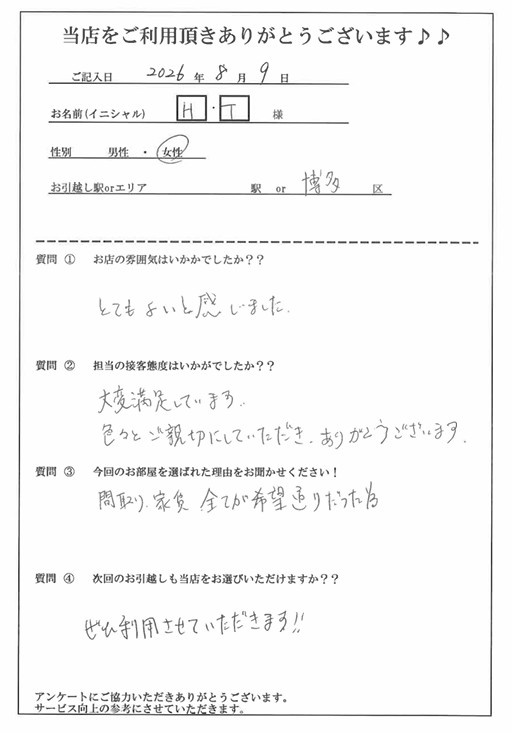 当店をご利用頂きありがとうございます♪♪
ご記入日 2026 年 8 月 9 日
お名前(イニシャル) H ・ T 様
性別 男性 ・ 女性
お引越し駅orエリア 駅 or 博多 区
質問 ① お店の雰囲気はいかかでしたか？？
とてもよいと感じました.
質問 ② 担当の接客態度はいかがでしたか？？
大変満足しています.
色々とご親切にしていただき、ありがとうございます.
質問 ③ 今回のお部屋を選ばれた理由をお聞かせください！
間取り、家賃 全てが希望通りだった為
質問 ④ 次回のお引越しも当店をお選びいただけますか？？
ぜひ利用させていただきます!!
アンケートにご協力いただきありがとうございます。
サービス向上の参考にさせていただきます。